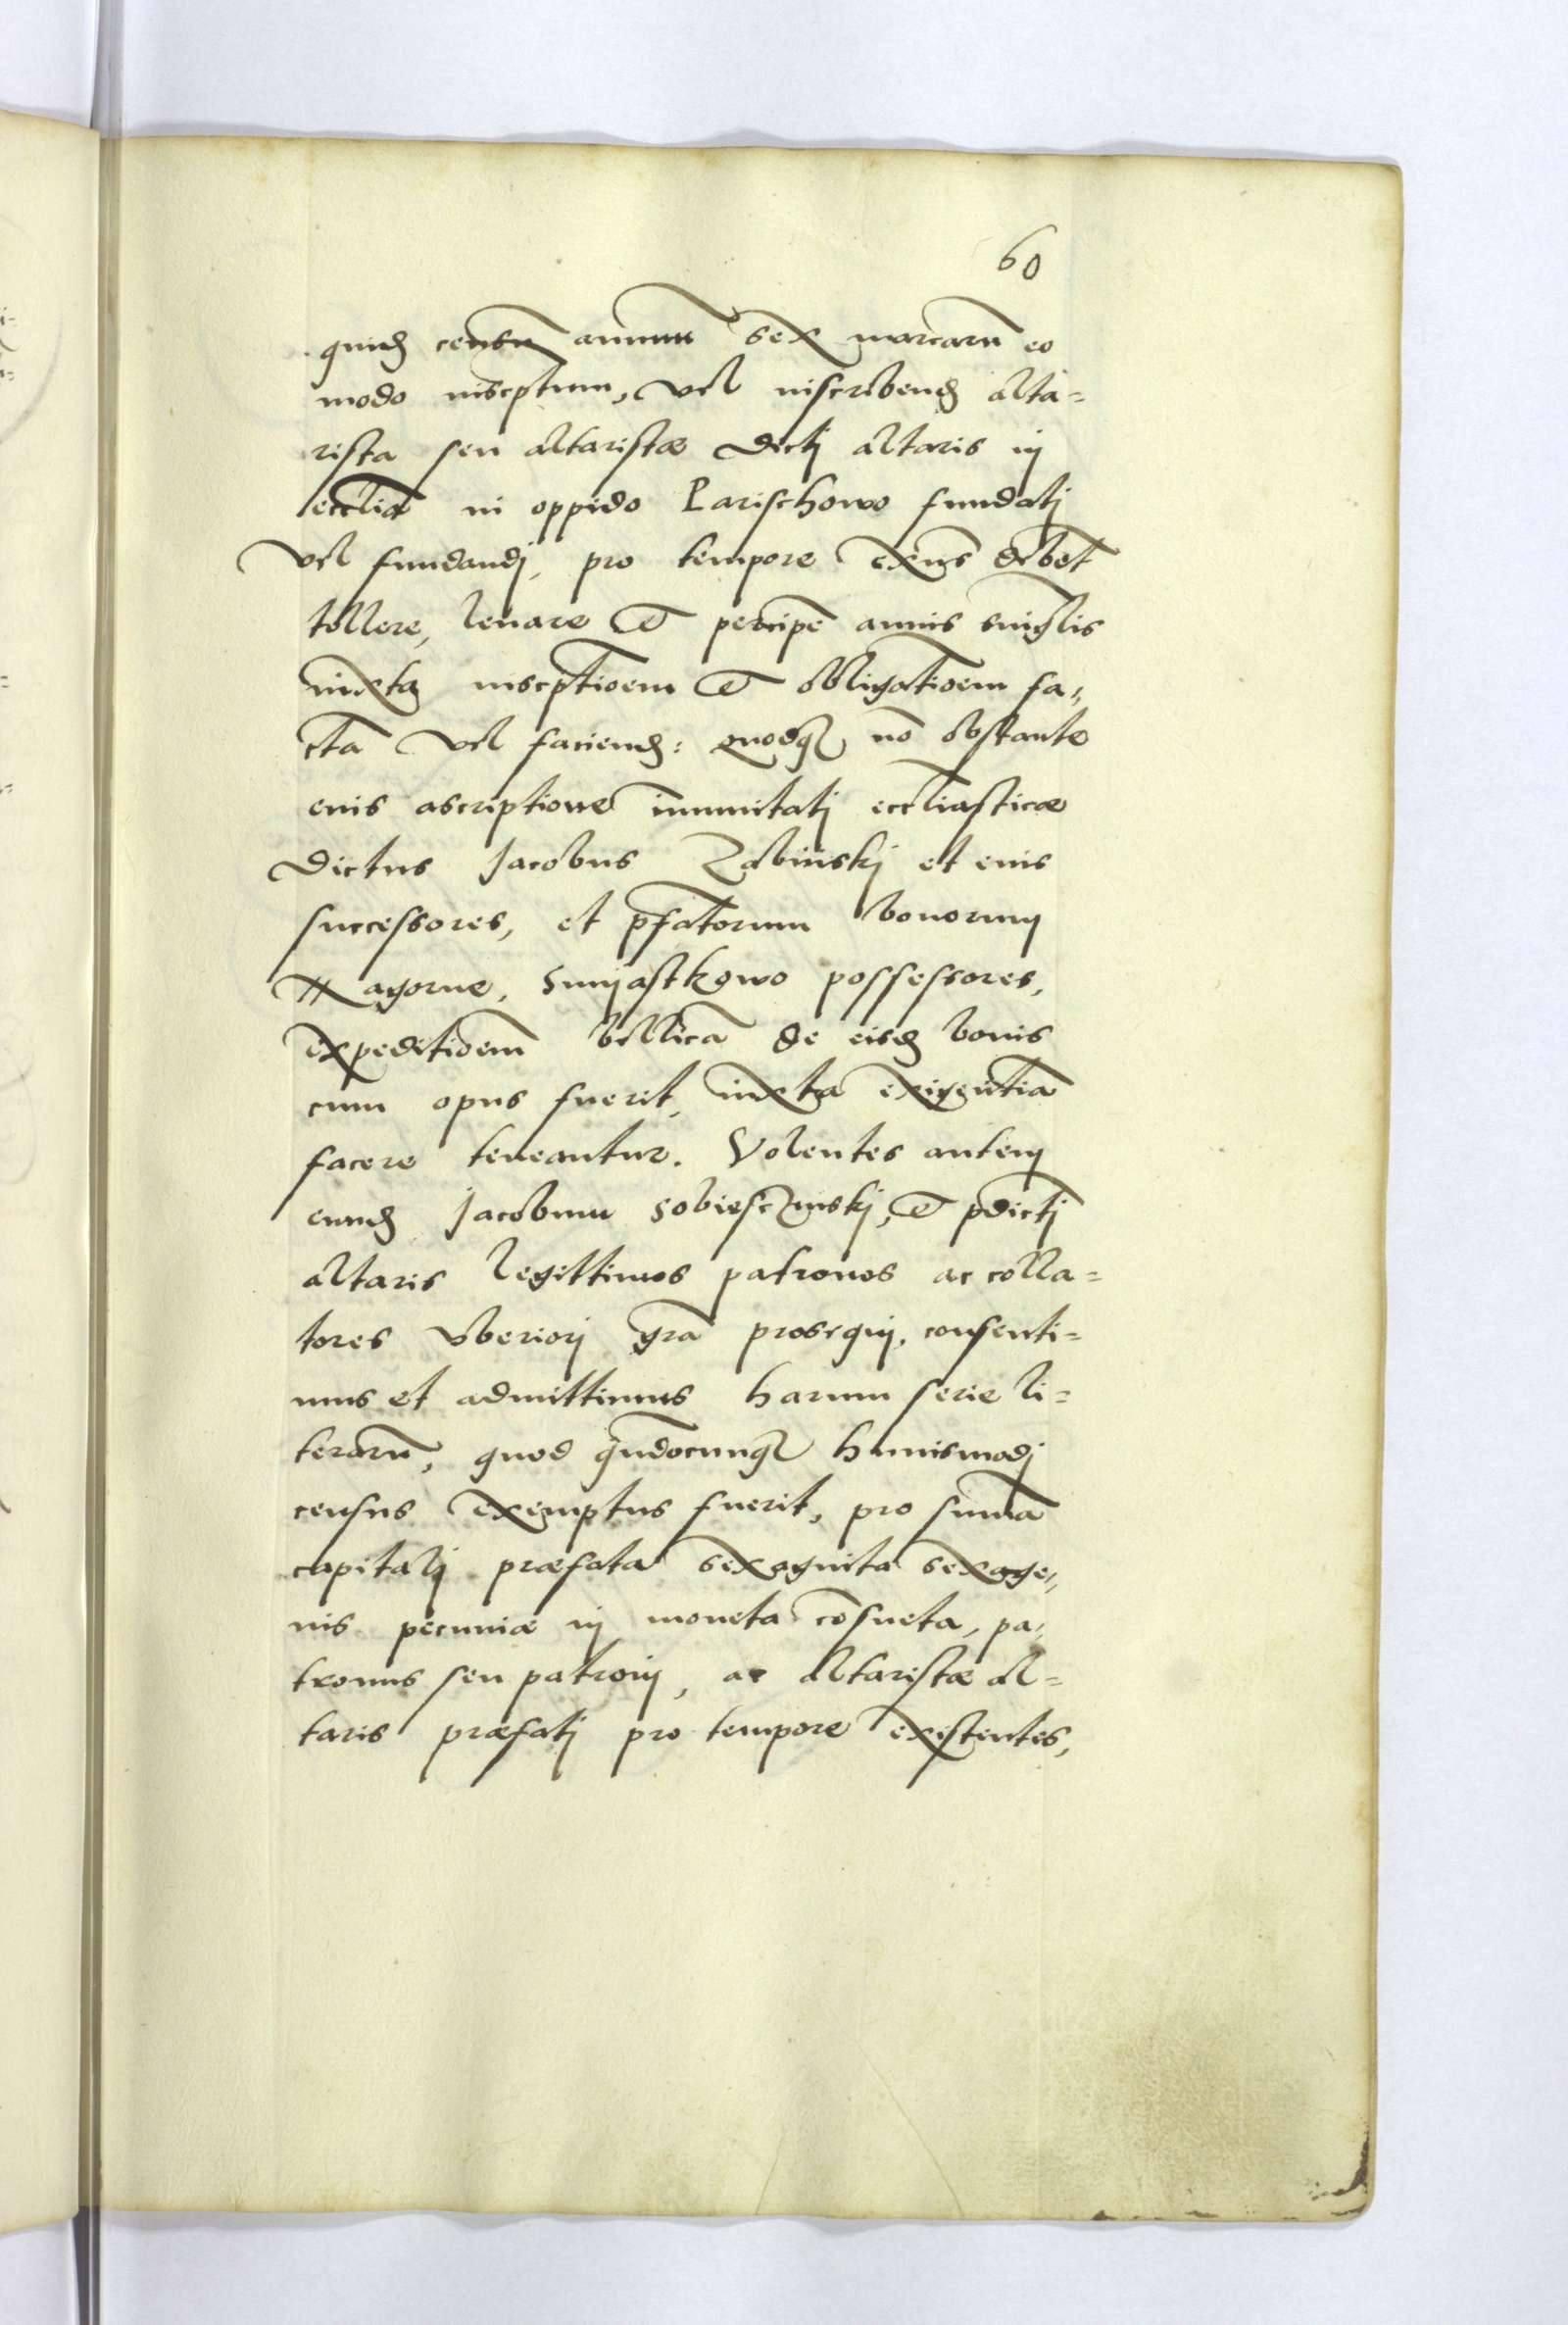 60
quid censum annuum sex marcarū eo
modo inscptum, vel inscribend alta=
rista seu altaristæ dicti altaris in
ecclia in oppido Parischowo fundati
vel fundandi, pro tempore exñs debet
tollere, leuare et percipe annis singlis
iuxta inscptioem et obligatioem fa=
ctā vel faciend: quodq nō obstante
euis ascriptione immunitati eccliasticæ
dictus Jacobus Zabinski et euis
successores, et pfatorum bonorum
possessores,
expeditioem bellicā de eisd bonis
cum opus fuerit, iuxta exigentiā
facere teneantur. Volentes autem
eund Jacobum Sobiesczinski, et pdicti
altaris legittimos patronos ac colla=
tores vberiori gra prosequi, consenti=
mus et admittimus harum serie li=
terarū, quod qndocunq huiusmodi
census exemptus fuerit, pro summa
capitali præfata sexaginta sexage=
nis pecuniæ in moneta cōsueta, pa=
tronus seu patroni, ac altaristæ al=
taris præfati pro tempore existentes,